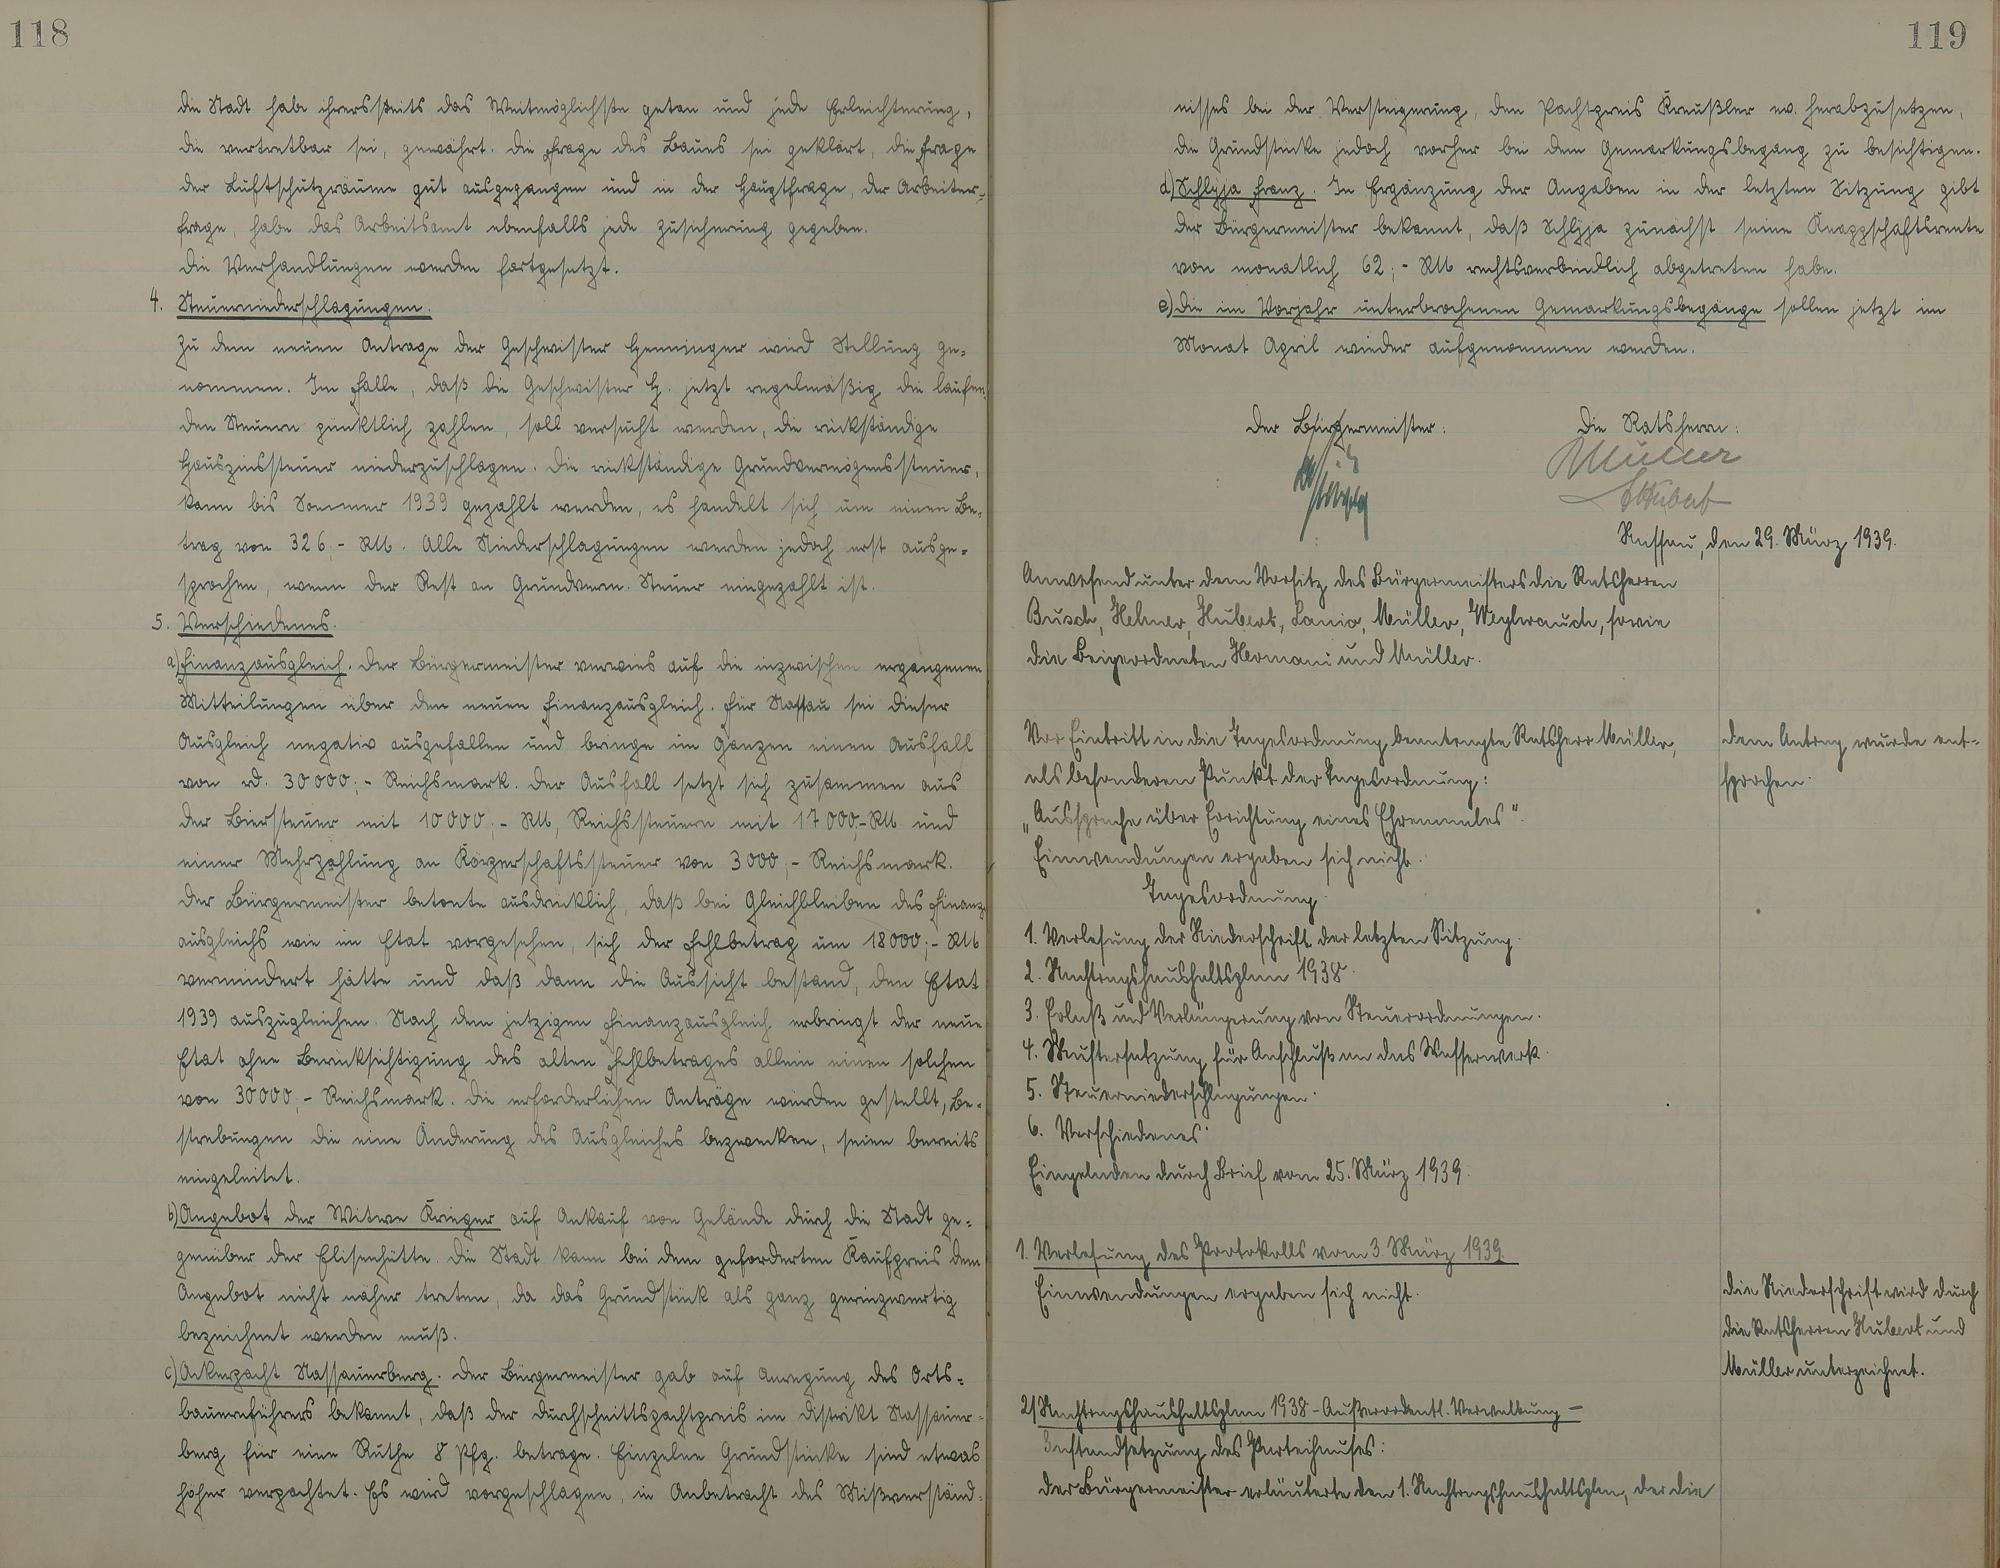 118
die Stadt habe ihrersseits das Weitmöglichste getan und jede Erleichterung,
die vertretbar sei, gewährt. Die Frage des Baues sei geklärt, die Frage
der Luftschutzräume gut ausgegangen und in der Hauptfrage, der Arbeiter-
frage, habe das Arbeitsamt ebenfalls jede Zusicherung gegeben.
Die Verhandlungen werden fortgesetzt.
4. Steuerniederschlagungen.
Zu dem neuen Antrage der Geschwister Henninger wird Stellung ge-
nommen. Im Falle, daß die Geschwister H. jetzt regelmäßig die laufen-
den Steuern pünktlich zahlen, soll versucht werden, die rückständige
Hauszinssteuer niederzuschlagen. Die rückständige Grundvermögenssteuer,
kann bis Sommer 1939 gezahlt werden, es handelt sich um einen Be-
trag von 326,- RM. Alle Niederschlagungen werden jedoch erst ausge-
sprochen, wenn der Rest an Grundverm. Steuer eingezahlt ist.
5. Verschiedenes.
a) Finanzausgleich. Der Bürgermeister verwies auf die inzwischen ergangenen
Mitteilungen über den neuen Finanzausgleich. Für Nassau sei dieser
Ausgleich negativ ausgefallen und bringe im Ganzen einen Ausfall
von rd. 30000,- Reichsmark. Der Ausfall setzt sich zusammen aus
der Biersteuer mit 10000,- RM, Reichssteuern mit 17000,- RM und
einer Mehrzahlung an Körperschaftssteuer von 3000,- Reichsmark.
Der Bürgermeister betonte ausdrücklich, daß bei Gleichbleiben des Finanz-
ausgleichs wie im Etat vorgesehen, sich der Fehlbetrag um 18000,- RM
vermindert hätte und daß dann die Aussicht bestand, den Etat
1939 auszugleichen. Nach dem jetzigen Finanzausgleich erbringt der neue
Etat ohne Berücksichtigung des alten Fehlbetrages allein einen solchen
von 30000,- Reichsmark. Die erforderlichen Anträge würden gestellt, Be-
strebungen die eine Änderung des Ausgleiches bezwecken, seien bereits
eingeleitet.
b) Angebot der Witwe Krieger auf Ankauf von Gelände durch die Stadt ge-
genüber der Elisenhütte. Die Stadt kann bei dem geforderten Kaufpreis dem
Angebot nicht näher treten, da das Grundstück als ganz geringwertig
bezeichnet werden muß.
c) Ackerpacht Nassauerberg. Der Bürgermeister gab auf Anregung des Orts-
bauernführers bekannt, daß der Durchschnittspachtpreis im Distrikt Nassauer-
berg für eine Ruthe 8 Pfg. betrage. Einzelne Grundstücke sind etwas
höher verpachtet. Es wird vorgeschlagen, in Anbetracht des Mißverständ-
119
nisses bei der Versteigerung, den Pachtpreis Kreußler ev. herabzusetzen,
die Grundstücke jedoch vorher bei dem Gemarkungsbegang zu besichtigen.
d) Schlyja Franz. In Ergänzung der Angaben in der letzten Sitzung gibt
der Bürgermeister bekannt, daß Schlyja zunächst seine Knappschaftsrente
von monatlich 62,- RM rechtsverbindlich abgetreten habe.
e) Die im Vorjahr unterbrochenen Gemarkungsbegänge sollen jetzt im
Monat April wieder aufgenommen werden.
Der Bürgermeister: Die Ratsherrn:
Müller
Hubert
Nassau, den 29. März 1939.
Anwesend unter dem Vorsitz des Bürgermeisters die Ratsherren
Busch, Hehner, Hubert, Lanio, Müller, Weyhrauch, sowie
die Beigeordneten Hermani und Müller.
Vor Eintritt in die Tagesordnung beantragte Ratsherr Müller,
als besonderen Punkt der Tagesordnung:
„Aussprache über Errichtung eines Ehrenmales".
Einwendungen ergaben sich nicht.
Dem Antrag wurde ent-
sprochen.
Tagesordnung.
1. Verlesung der Niederschrift der letzten Sitzung.
2. Nachtragshaushaltsplan 1938.
3. Erlaß und Verlängerung von Steuerordnungen.
4. Mustersatzung für Anschluß an das Wasserwerk.
5. Steuerniederschlagungen.
6. Verschiedenes.
Eingeladen durch Brief vom 25. März 1939.
1. Verlesung des Protokolls vom 3. März 1939.
Einwendungen ergaben sich nicht.
Die Niederschrift wird durch
die Ratsherren Hubert und
Müller unterzeichnet.
2/ Nachtragshaushaltsplan 1938 - Außerordentl. Verwaltung -
Instandsetzung des Parteihauses:
Der Bürgermeister erläuterte den 1. Nachtragshaushaltsplan, der die